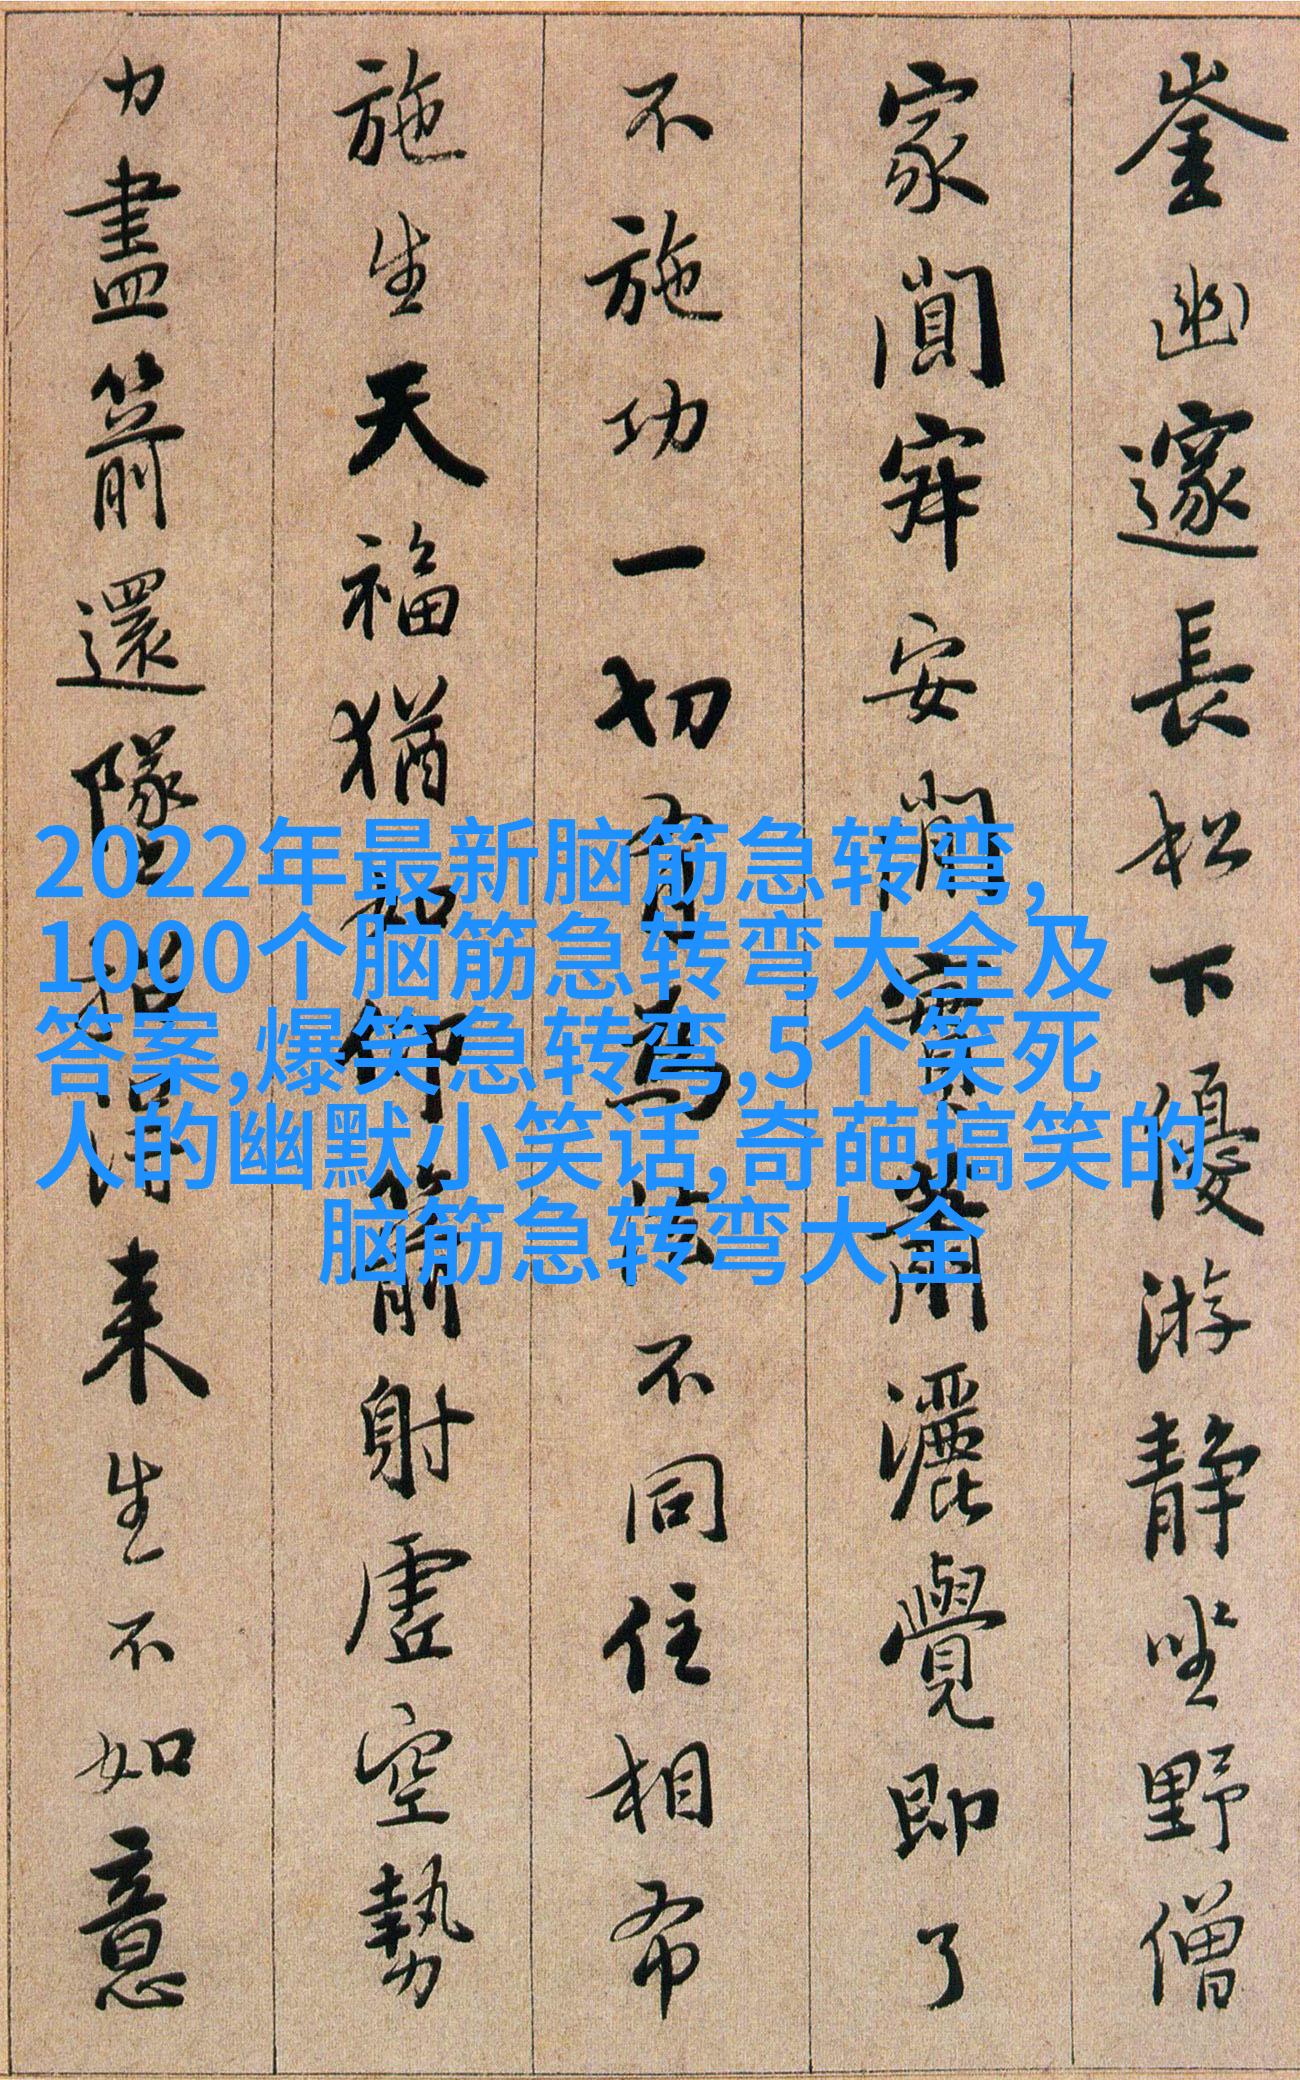 崟幽邃長松下優游静坐野僧
家闃寂安閑實蕭灑覺即了
不施功一切有為法不同住相布
施生天福猶如仰箭射虛空勢
力盡箭還墜招得来生不如意
2022年最新脑筋急转弯,
1000个脑筋急转弯大全及
答案,爆笑急转弯,5个笑死
人的幽默小笑话,奇葩搞笑的
脑筋急转弯大全